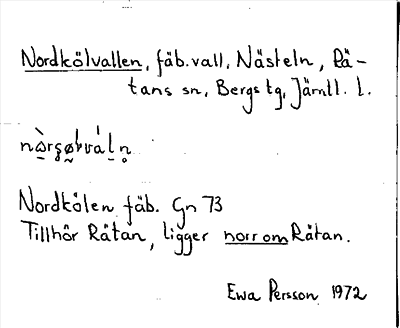 Nordkölvallen, fäb.vall, Nästeln, Rä-
tans sn, Bergs tg, Jämtl. l.
Nordkölen fäb. Gn 73
Tillhör Rätan, ligger norr om Rätan.
Ewa Persson 1972